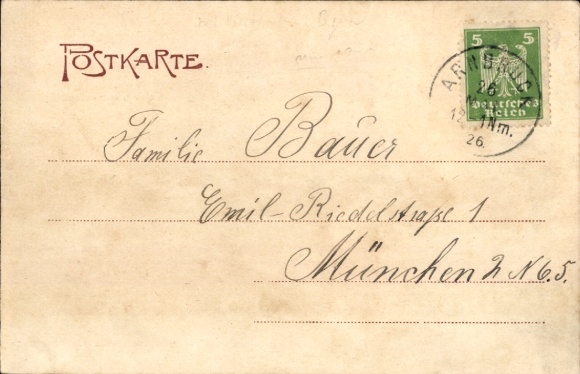 POSTKARTE.
5 5
Deutsches
Reich
ARNBRUCK
26
12-1Nm.
26.
Familie Bauer
Emil-Riedelstraße 1
München 2 N 6.5.